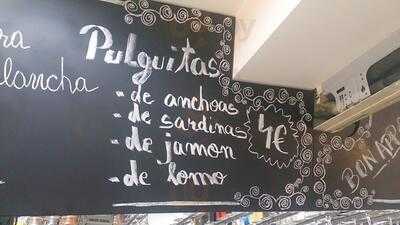 lancha
Pulguitas
- de anchoas
- de sardinas
- de jamon
- de lomo
4€
BON